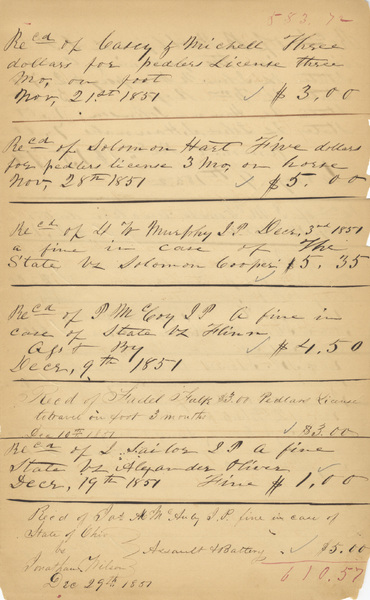 583.72
Recd of Casey & Michell Three
dollars for pedlers License three
Mo, on foot
Nov, 21st 1851 $3.00
Recd of Solomon Hart Five dollars
for pedlers license 3 Mo, on horse
Nov, 28th 1851 $5.00
Recd of W Murphy J P Decr, 3rd 1851
a fine in case of The
State vs Solomon Cooper $5.35
Recd of P McCoy J P A fine in
case of State vs Flinn
A,s,t By $4.50
Decr, 9th 1851
Recd of Fadel Falk $3.00 Pedlars License
to travel on foot 3 months
Dec 1851 $3.00
Recd of S Sailor J P A fine
State vs Alexander Oliver
Decr, 19th 1851 Fine $1,00
Recd of J.P. fine in case of
State of Ohio
vs Assault & Battery $5.00
Jonathan Nelson
Dec 29th 1851 610.57